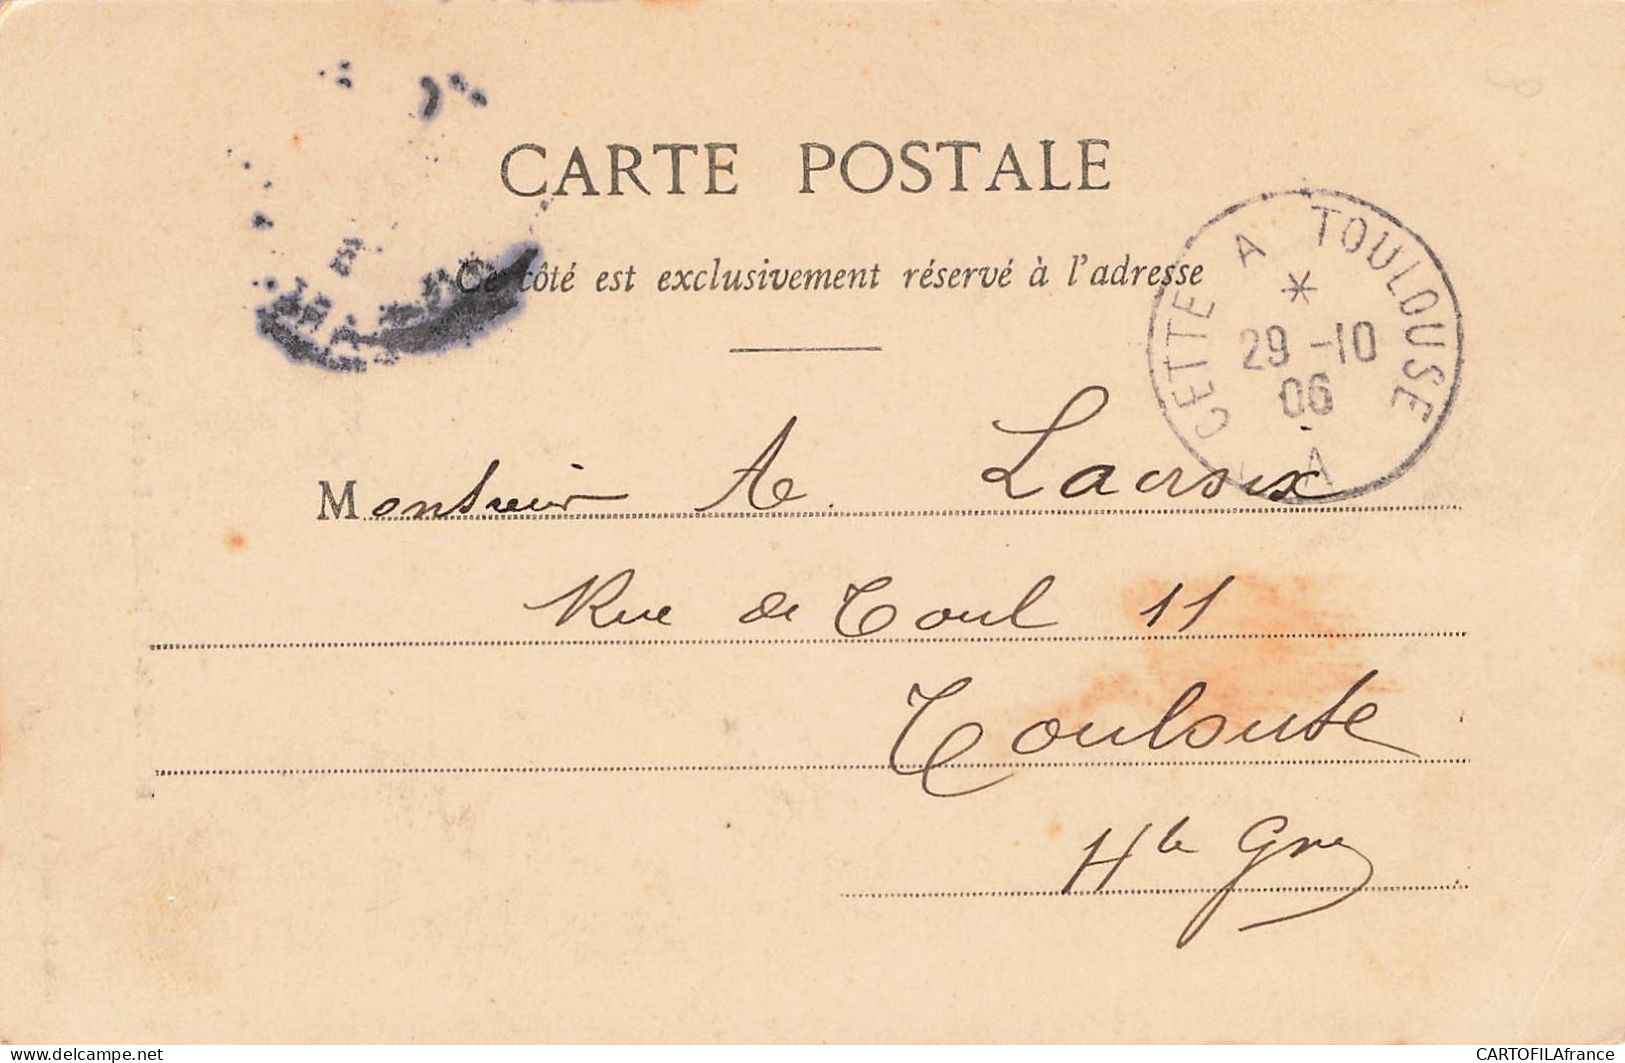 CARTE POSTALE
Ce côté est exclusivement réservé à l'adresse
CETTE A TOULOUSE
29 -10
06
A
Monsieur A. Lacroix
Rue de Toul 11
Toulouse
Hte Gne
delcampe.net
CARTOFILAfrance